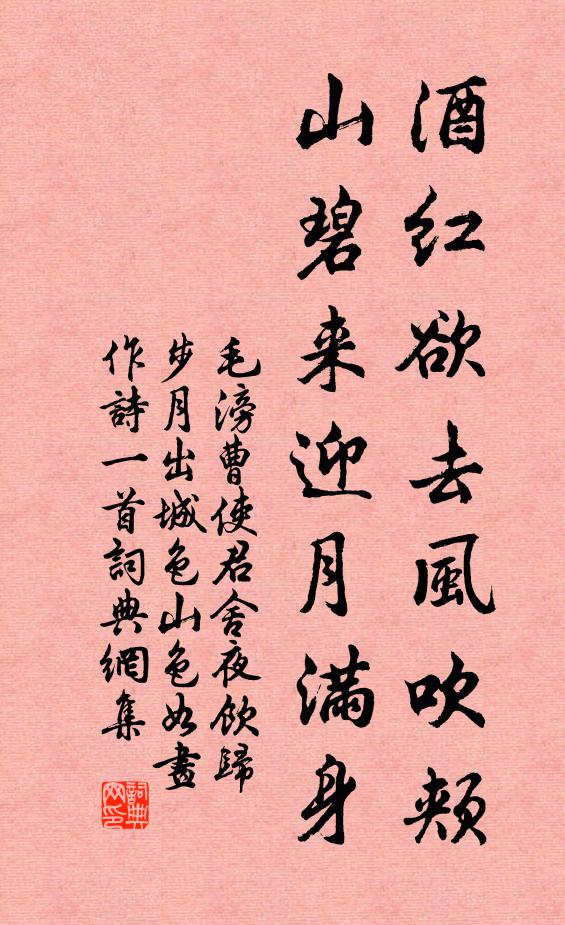 酒红欲去風吹頰
山碧来迎月满身
毛滂曹使君舍夜飲歸
步月出城色山色如畫
作詩一首詞典網集
詞典网印